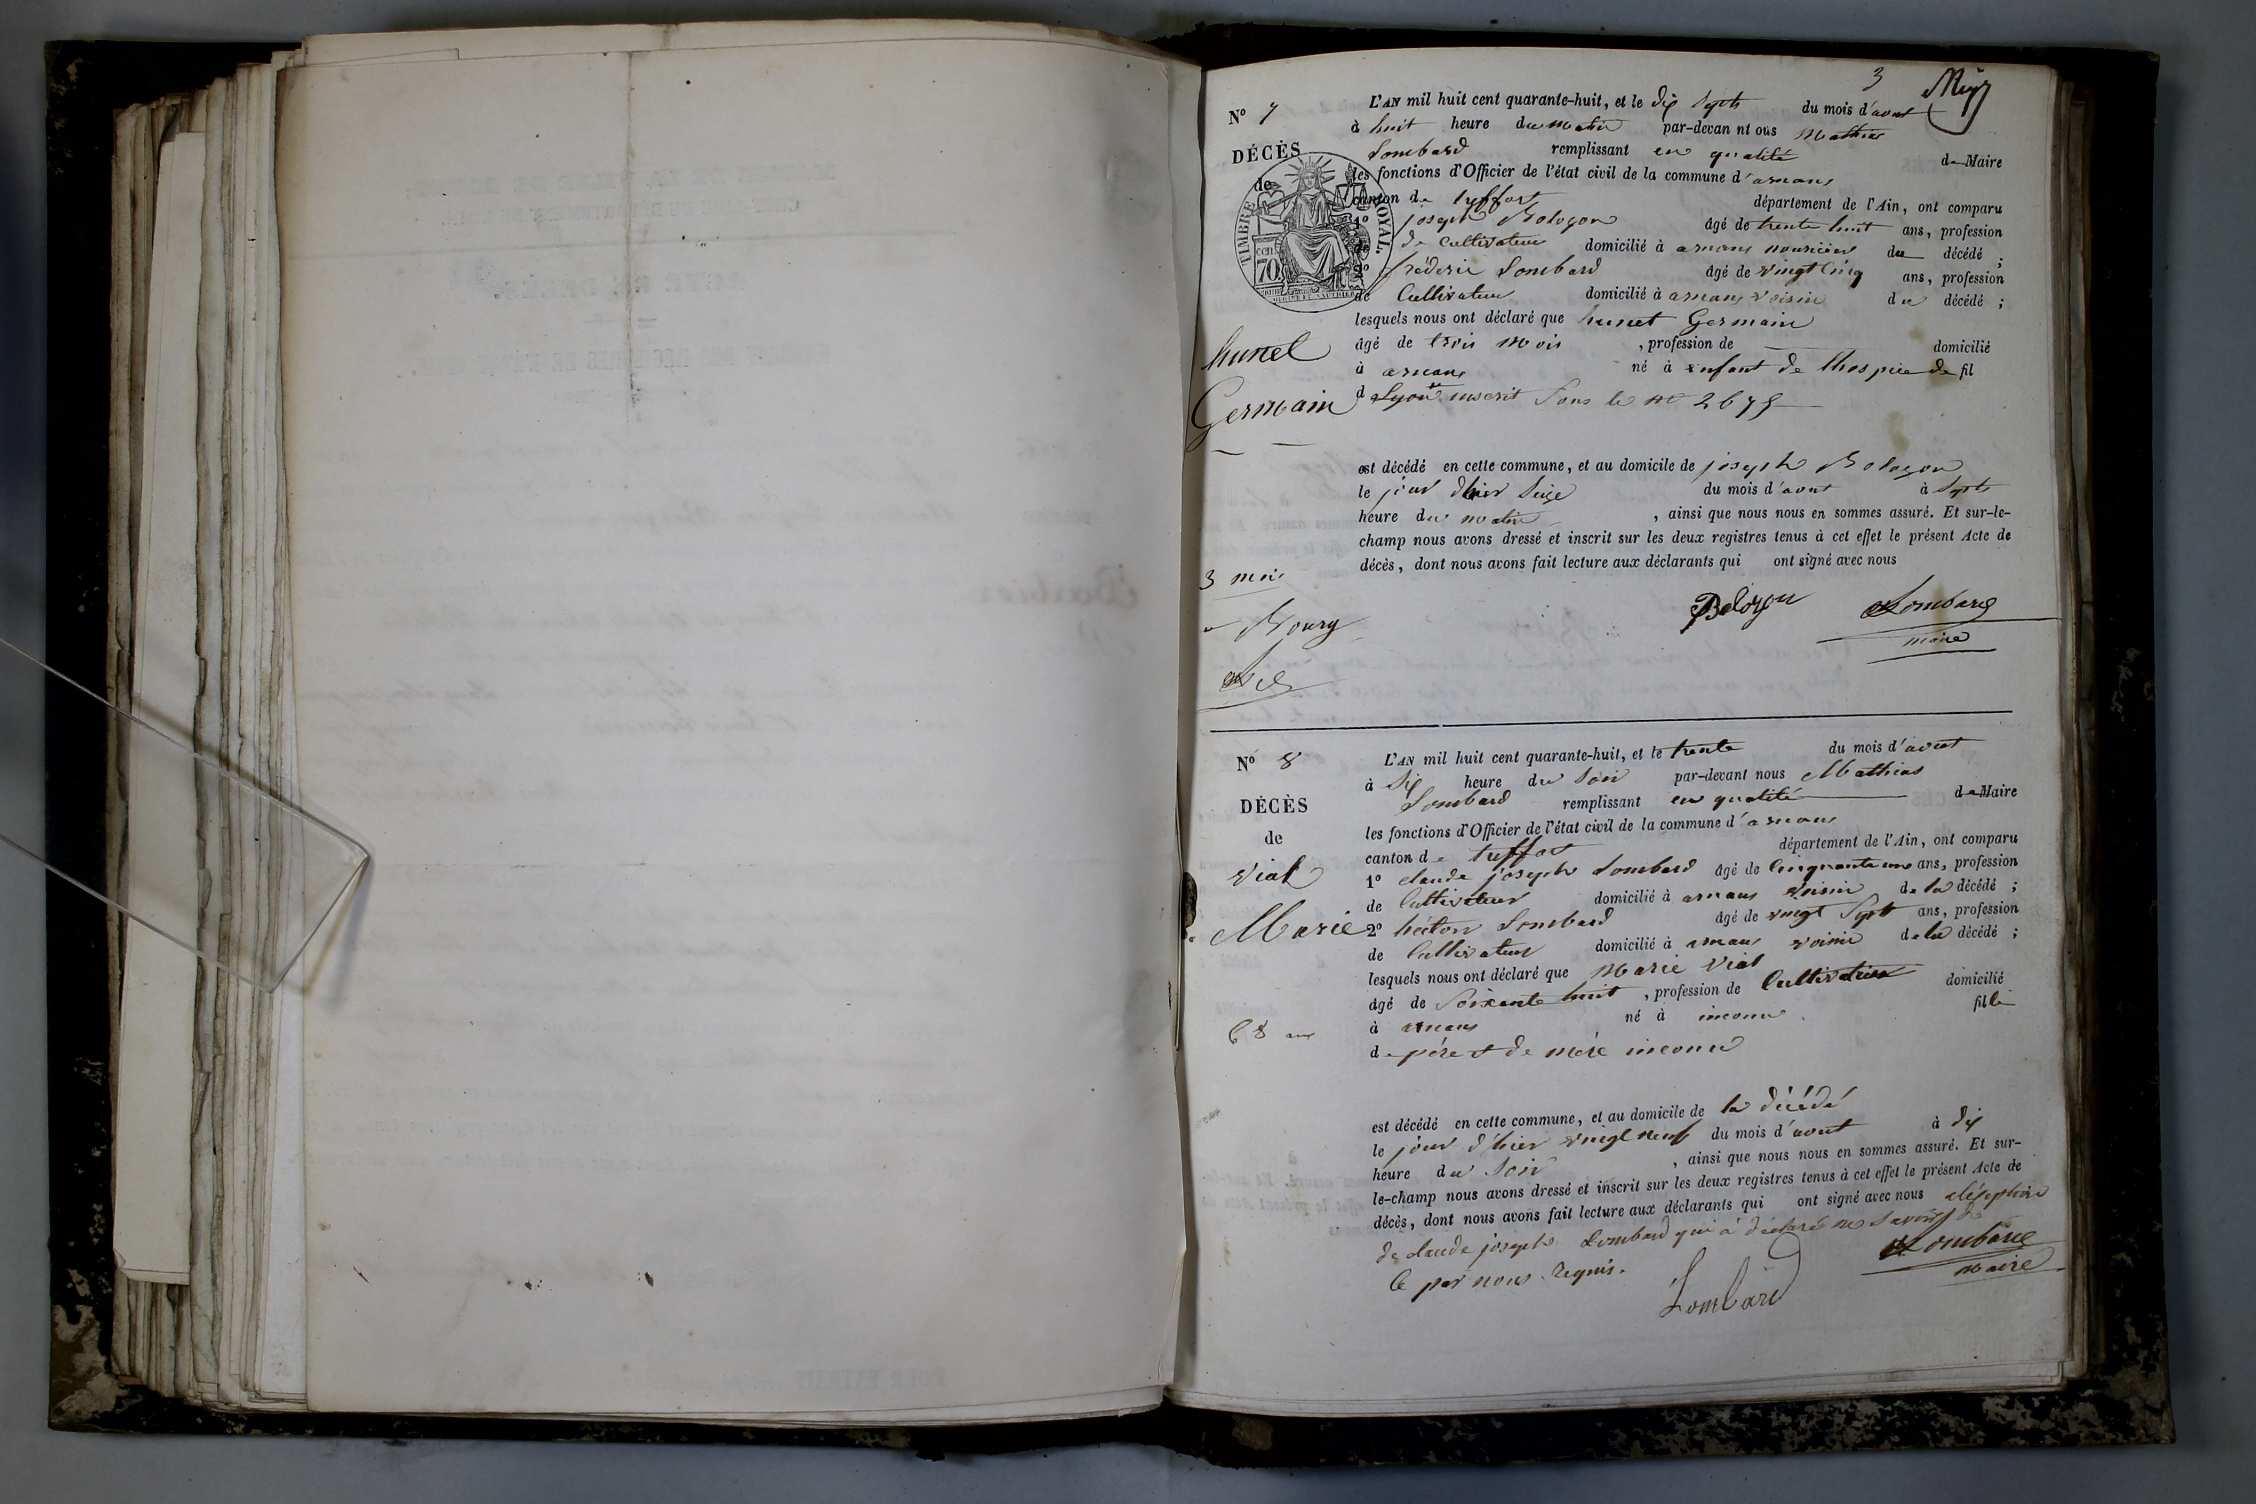 3
N° 7
DÉCÈS
de
hunel
Germain
3 mois
Bourg
TIMBRE ROYAL.
70
L'AN mil huit cent quarante-huit, et le dix septs du mois d'aout
à huit heure du matin par-devan nt ous Mathias
Lombard remplissant en qualité de Maire
les fonctions d'Officier de l'état civil de la commune d'arnans
canton de treffort département de l'Ain, ont comparu
1° joseph Bologon âgé de trente huit ans, profession
de cultivateur domicilié à arnans nouricier du décédé ;
2° fréderic Lombard âgé de vingt cinq ans, profession
de Cultivateur domicilié à arnans voisin du décédé ;
lesquels nous ont déclaré que hunet Germain
âgé de trois mois , profession de domicilié
à arnans né à enfant de lhospice de fil
d Lyon inscrit sous le n° 2675
est décédé en cette commune, et au domicile de joseph Bologon
le jour dhier seize du mois d'aout à septs
heure du matin , ainsi que nous nous en sommes assuré. Et sur-le-
champ nous avons dressé et inscrit sur les deux registres tenus à cet effet le présent Acte de
décès, dont nous avons fait lecture aux déclarants qui ont signé avec nous
Bologon Lombard
maire
N° 8
DÉCÈS
de
vial
Marie
68 ans
L'AN mil huit cent quarante-huit, et le trente du mois d'aout
à six heure du soir par-devant nous Mathias
Lombard remplissant en qualité de Maire
les fonctions d'Officier de l'état civil de la commune d'arnans
canton de treffort département de l'Ain, ont comparu
1° claude joseph Lombard âgé de cinquante un ans, profession
de Cultivateur domicilié à arnans voisin de la décédé ;
2° héctor Lombard âgé de vingt septs ans, profession
de Cultivateur domicilié à arnans voisin de la décédé ;
lesquels nous ont déclaré que Marie vial
âgé de soixante huit , profession de Cultivatrice domicilié
à arnans né à inconu fille
de pére et de mére inconu
est décédé en cette commune, et au domicile de la décédé
le jour d'hier vingt neuf du mois d'aout à dix
heure du soir , ainsi que nous nous en sommes assuré. Et sur-
le-champ nous avons dressé et inscrit sur les deux registres tenus à cet effet le présent Acte de
décès, dont nous avons fait lecture aux déclarants qui ont signé avec nous
de claude joseph Lombard qui à déclaré ne savoir
ce par nous requis.
Lombard Lombard
maire